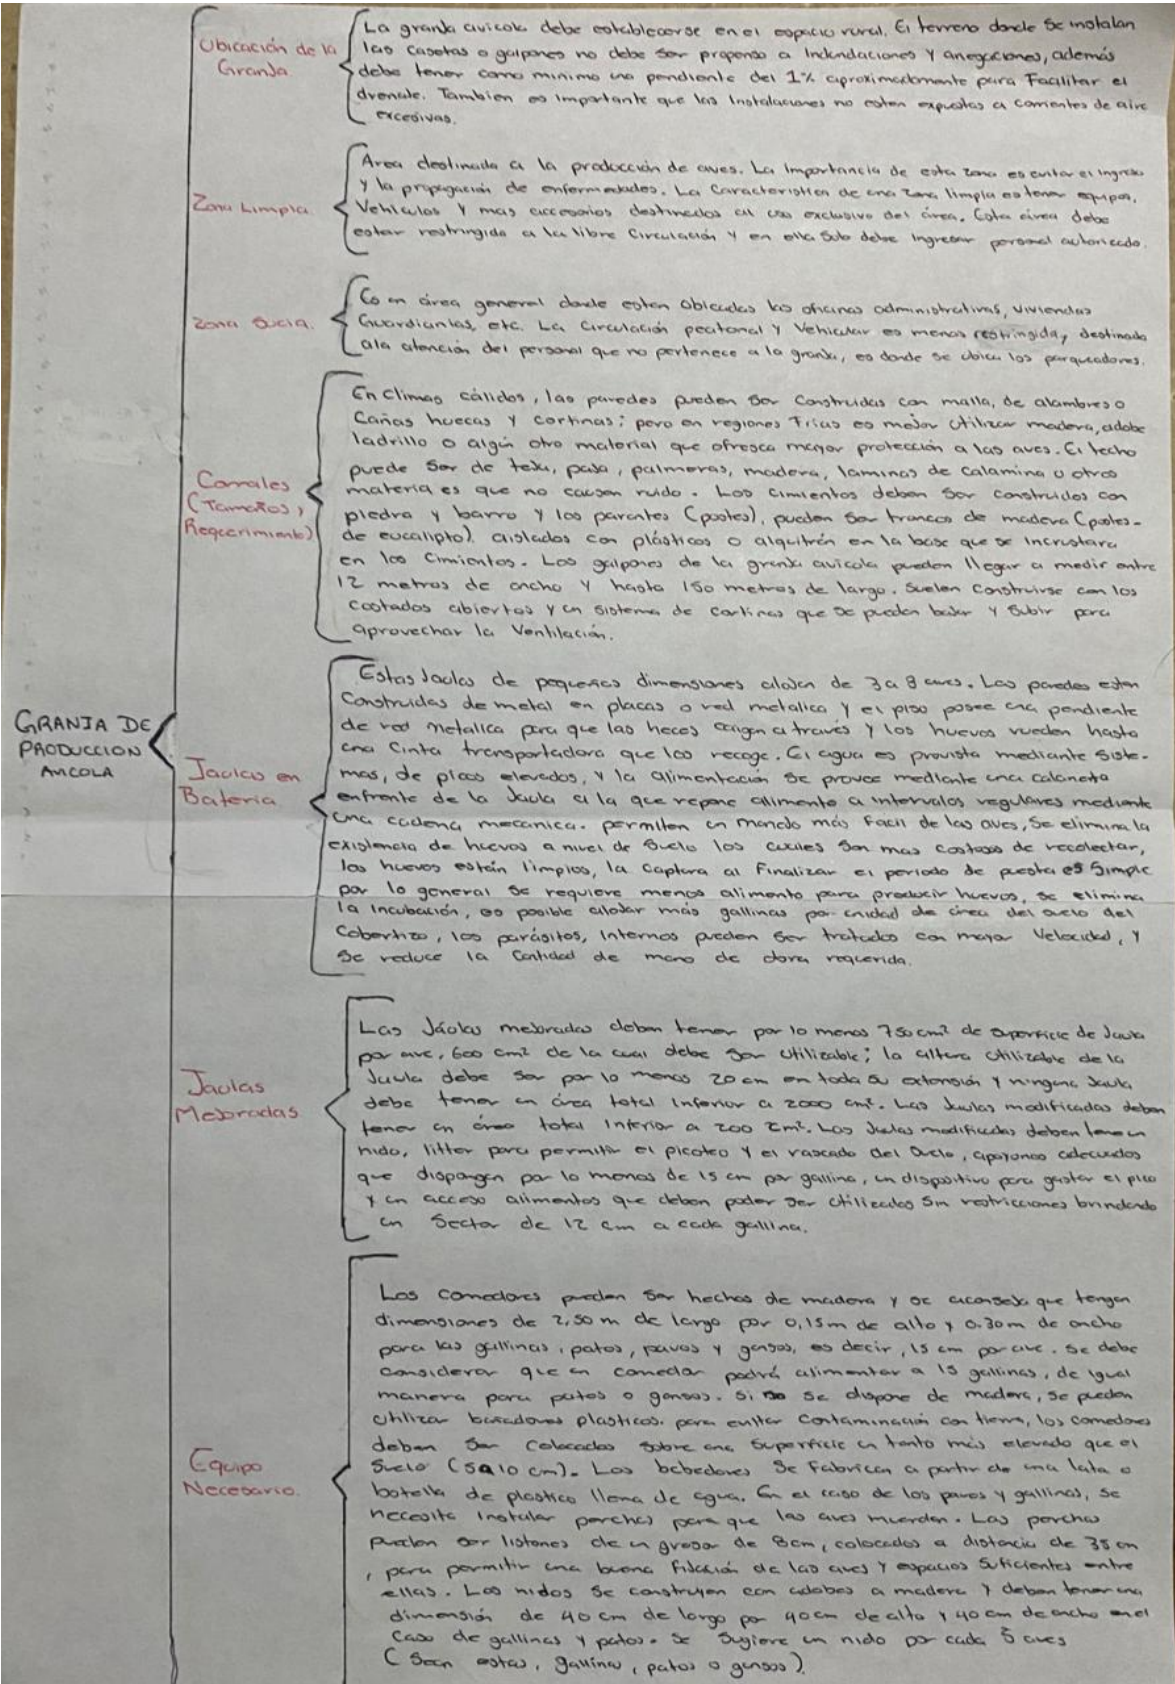 GRANJA DE
PRODUCCION
AVICOLA
Ubicación de la
Granja
La granja avicola debe establecerse en el espacio rural. El terreno donde se instalan
las casetas o galpones no debe ser propenso a Indundaciones y anegaciones, además
debe tener como minimo una pendiente del 1% aproximadamente para Facilitar el
drenaje. Tambien es importante que las Instalaciones no esten expuestas a corrientes de aire
excesivas.
Zona Limpia
Area destinada a la producción de aves. La importancia de esta zona es evitar el ingreso
y la propagación de enfermedades. La Caracteristica de una zona limpia es tener equipos,
Vehiculos y mas accesorios destinados al uso exclusivo del área. Esta área debe
estar restringida a la libre Circulación y en ella Solo debe Ingresar personal autorizado.
Zona Sucia.
Es un área general donde estan Obicadas las oficinas administrativas, viviendas
Guardianías, etc. La Circulación peatonal y Vehicular es menos restringida, destinada
ala atención del personal que no pertenece a la granja, es donde se ubica los parqueadores.
Corrales
(Tamaños,
Requerimiento)
En Climas cálidos, las paredes pueden ser Construidas con malla, de alambres o
Cañas huecas y cortinas; pero en regiones Frías es mejor Utilizar madera, adobe
ladrillo o algún otro material que ofresca mayor protección a las aves. El techo
puede ser de teja, paja, palmeras, madera, laminas de Calamina u otros
materiales que no causen ruido. Los cimientos deben ser construidos con
piedra y barro y los parantes (postes), pueden ser troncos de madera (postes-
de eucalipto) aislados con plásticos o alquitrán en la base que se Incrustara
en los Cimientos. Los galpones de la granja avicola pueden llegar a medir entre
12 metros de ancho y hasta 150 metros de largo. Suelen Construirse con los
costados abiertos y un sistema de cortinas que se pueden bajar y Subir para
aprovechar la Ventilación.
Jaulas en
Bateria
Estas Jaulas de pequeñas dimensiones alojan de 3 a 8 aves. Las paredes estan
Construidas de metal en placas o red metalica y el piso posee una pendiente
de red metalica para que las heces caigan a través y los huevos rueden hasta
una Cinta transportadora que los recoge. El agua es provista mediante Siste-
mas, de picos elevados, y la alimentación se provee mediante una calaneta
enfrente de la Jaula a la que repone alimento a intervalos regulares mediante
una cadena mecánica. permiten un manejo más Facil de las aves, Se elimina la
existencia de huevos a nivel de Suelo los cuales son mas costosos de recolectar,
los huevos están limpios, la Captura al Finalizar el periodo de puesta es Simple
por lo general se requiere menos alimento para producir huevos, se elimina
la Incubación, es posible alojar más gallinas por unidad de área del suelo del
Cobertizo, los parásitos, Internos pueden ser tratados con mayor Velocidad, Y
Se reduce la Cantidad de mano de obra requerida.
Jaulas
Mejoradas
Las Jáulas mejoradas deben tener por lo menos 750 cm² de superficie de Jaula
por ave, 600 cm² de la cual debe ser Utilizable; la altura Utilizable de la
Jaula debe ser por lo menos 20 cm en toda su extensión y ninguna Jaula
debe tener un área total Inferior a 2000 cm². Las Jaulas modificadas deben
tener un área total Inferior a 200 2m². Las Jaulas modificadas deben tener un
nido, litter para permitir el picoteo y el rascado del Suelo, apoyanos adecuados
que dispongan por lo menos de 15 cm por gallina, un dispositivo para gastar el pico
y un acceso alimentos que deben poder ser Utilizados Sin restricciones brindando
un Sector de 12 cm a cada gallina.
Equipo
Necesario.
Los Comedores pueden ser hechos de madera y se aconseja que tengan
dimensiones de 2,50 m de largo por 0,15m de alto y 0.30m de ancho
para las gallinas, patos, pavos y gansos, es decir, 15 cm por ave. Se debe
considerar que un comedor podrá alimentar a 15 gallinas, de igual
manera para patos o gansos. Si no se dispone de madera, se pueden
Utilizar plasticos. para evitar Contaminación con tierra, los comedores
deben Ser Colocados sobre una Superficie un tanto más elevado que el
Suelo (5a10 cm). Los bebedores Se Fabrican a partir de una lata o
botella de plastico llena de agua. En el caso de los pavos y gallinas, se
necesita Instalar perchas para que las aves  Las perchas
pueden ser listones de un grosor de 8cm, colocados a distancia de 35 cm
, para permitir una buena Fijación de las aves y espacios Suficientes entre
ellas. Los nidos Se construyen con adobes a madera y deben tener una
dimensión de 40 cm de largo por 40 cm de alto y 40 cm de ancho en el
Caso de gallinas y patos. Se Sugiere un nido por cada 5 aves
(Sean estas, gallinas, patos o gansos).